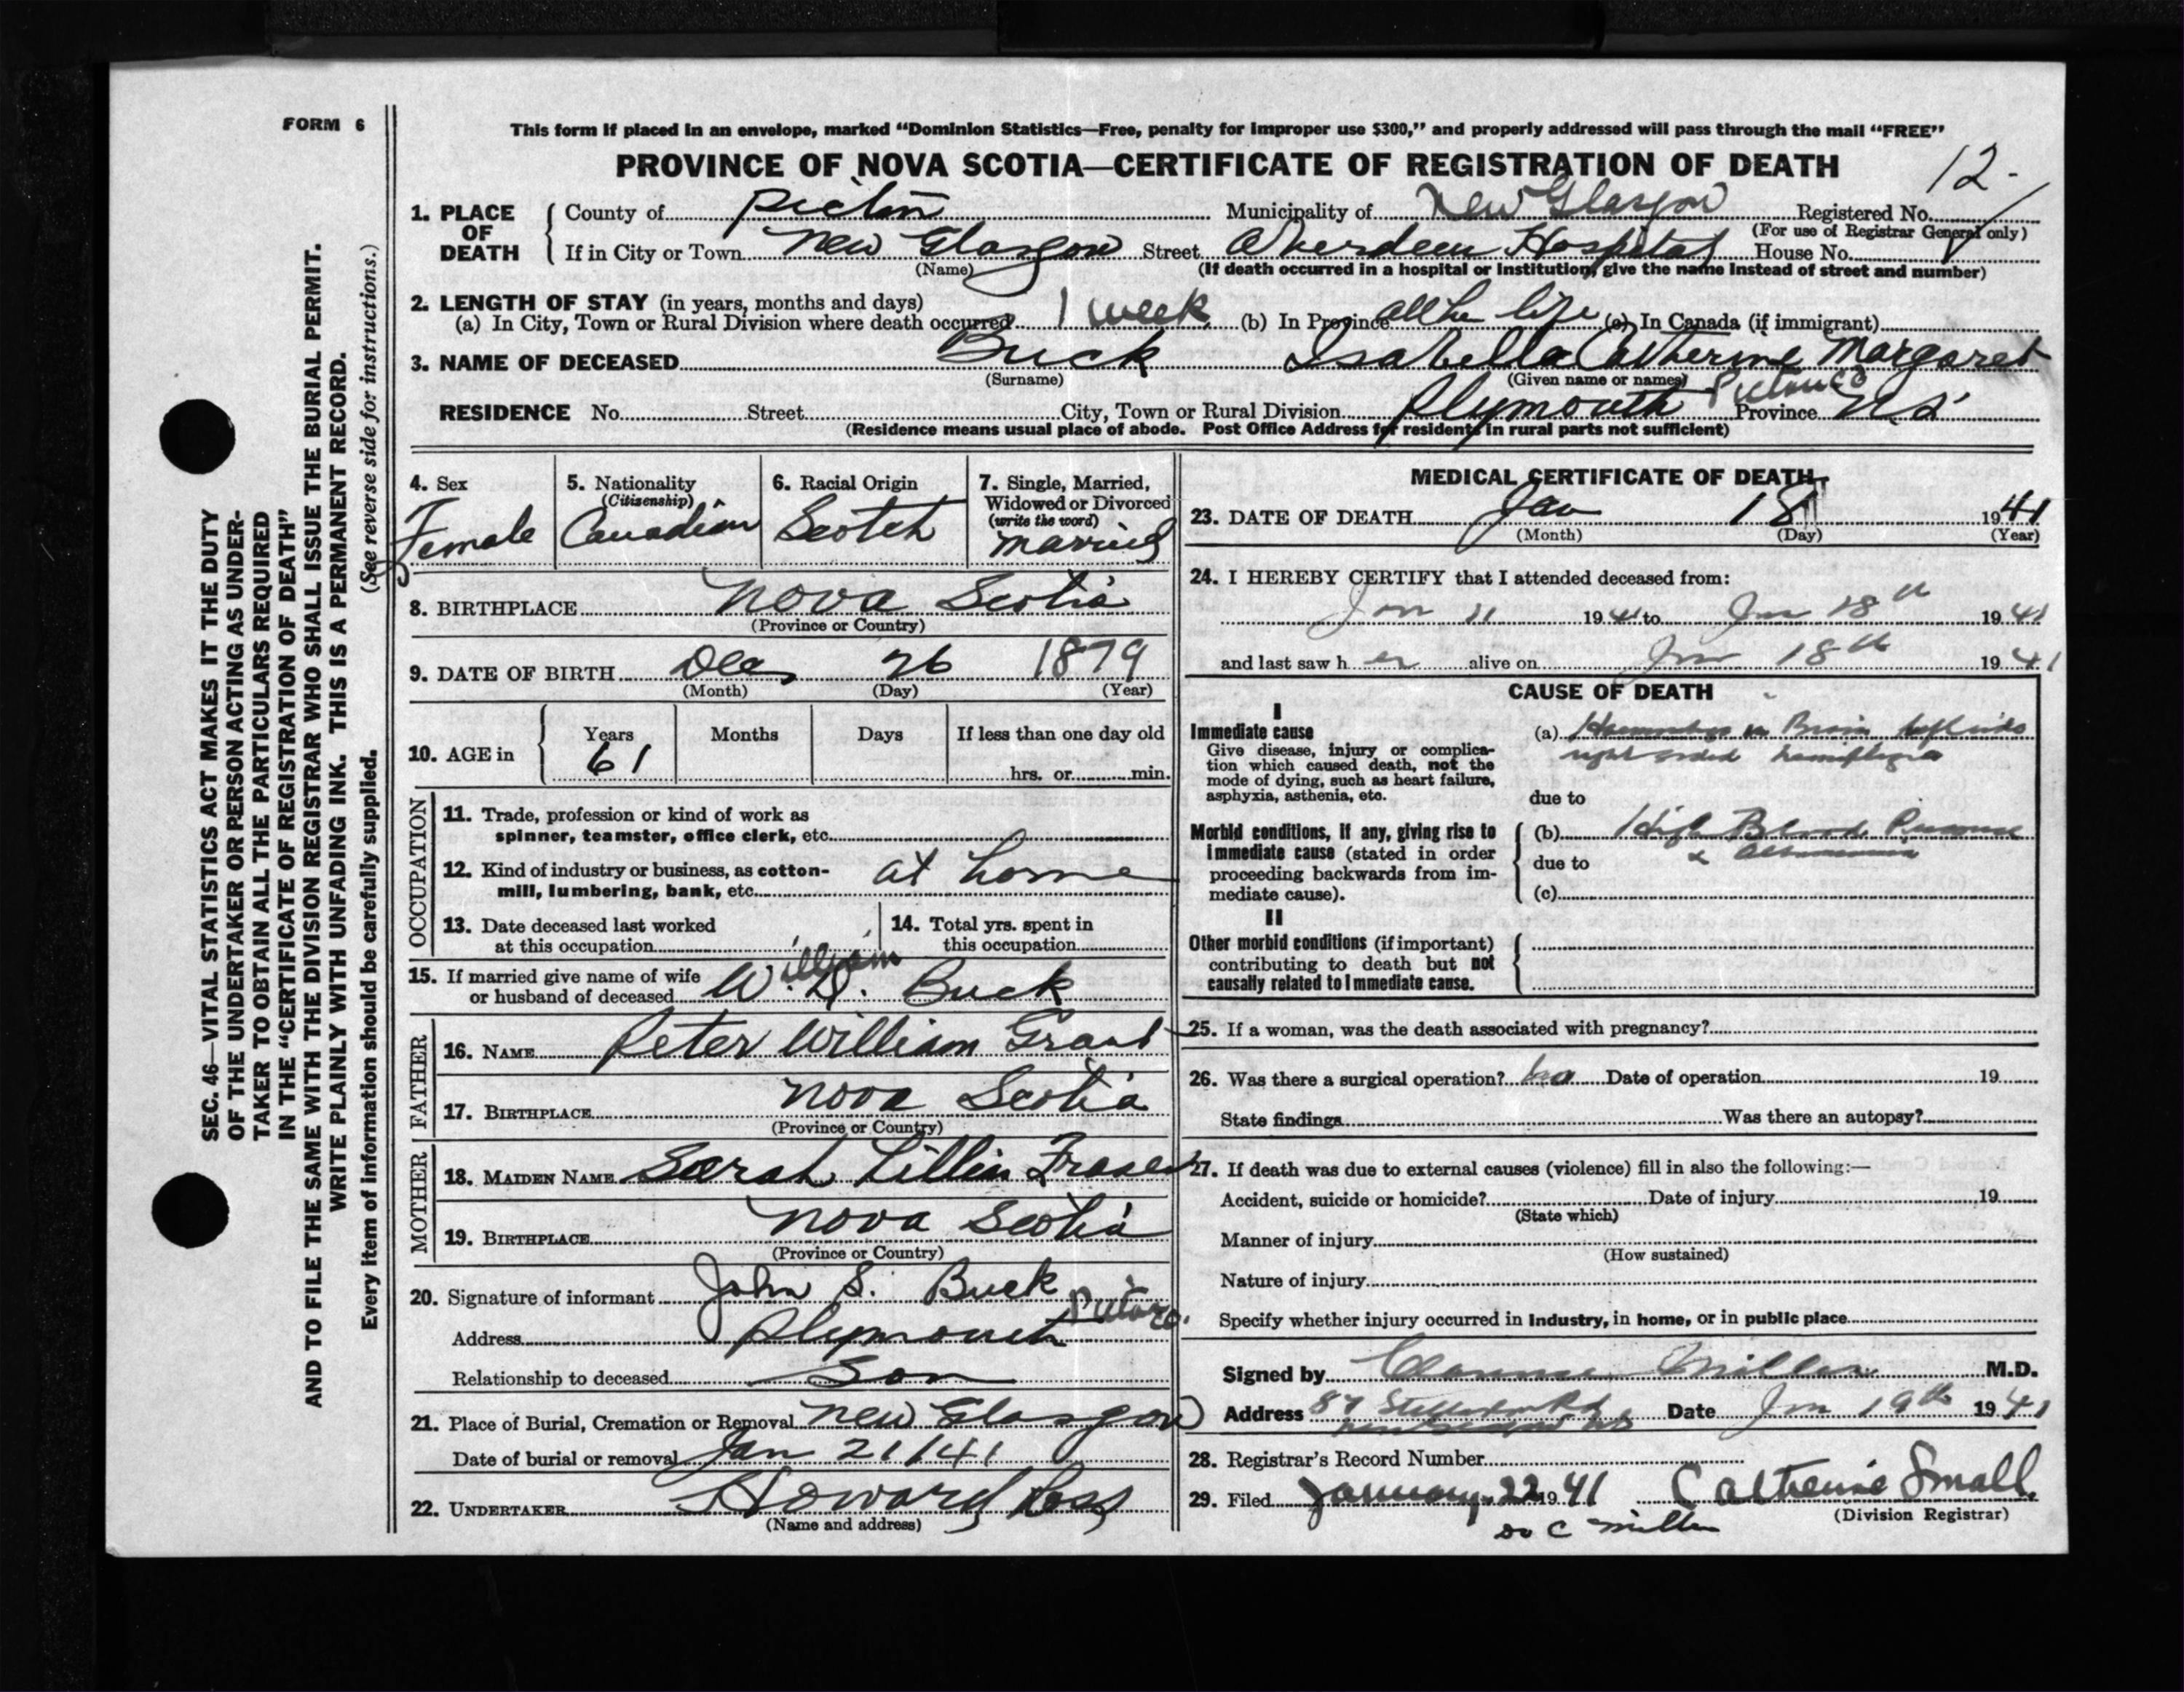 FORM 6
SEC. 46—VITAL STATISTICS ACT MAKES IT THE DUTY
OF THE UNDERTAKER OR PERSON ACTING AS UNDER-
TAKER TO OBTAIN ALL THE PARTICULARS REQUIRED
IN THE "CERTIFICATE OF REGISTRATION OF DEATH"
AND TO FILE THE SAME WITH THE DIVISION REGISTRAR WHO SHALL ISSUE THE BURIAL PERMIT.
WRITE PLAINLY WITH UNFADING INK. THIS IS A PERMANENT RECORD.
Every item of information should be carefully supplied. (See reverse side for instructions.)
This form if placed in an envelope, marked "Dominion Statistics—Free, penalty for improper use $300," and properly addressed will pass through the mail "FREE"
PROVINCE OF NOVA SCOTIA—CERTIFICATE OF REGISTRATION OF DEATH
12-
1. PLACE OF DEATH
County of Pictou Municipality of New Glasgow Registered No.
(For use of Registrar General only)
If in City or Town New Glasgow Street Aberdeen Hospital House No.
(Name) (If death occurred in a hospital or institution, give the name instead of street and number)
2. LENGTH OF STAY (in years, months and days)
(a) In City, Town or Rural Division where death occurred 1 week (b) In Province all her life (c) In Canada (if immigrant)
3. NAME OF DECEASED Buck Isabella Catherine Margaret
(Surname) (Given name or names)
RESIDENCE No. Street City, Town or Rural Division Plymouth Pictou Co Province N S
(Residence means usual place of abode. Post Office Address for residents in rural parts not sufficient)
4. Sex
Female
5. Nationality
(Citizenship)
Canadian
6. Racial Origin
Scotch
7. Single, Married,
Widowed or Divorced
(write the word)
Married
8. BIRTHPLACE Nova Scotia
(Province or Country)
9. DATE OF BIRTH Dec 26 1879
(Month) (Day) (Year)
10. AGE in Years Months Days If less than one day old
61 hrs. or min.
OCCUPATION
11. Trade, profession or kind of work as
spinner, teamster, office clerk, etc.
12. Kind of industry or business, as cotton-
mill, lumbering, bank, etc. at home
13. Date deceased last worked
at this occupation
14. Total yrs. spent in
this occupation
15. If married give name of wife
or husband of deceased W. D. Buck
William
FATHER
16. NAME Peter William Grant
17. BIRTHPLACE Nova Scotia
(Province or Country)
MOTHER
18. MAIDEN NAME Sarah Lillian Fraser
19. BIRTHPLACE Nova Scotia
(Province or Country)
20. Signature of informant John S. Buck
Address Plymouth Pictou Co.
Relationship to deceased Son
21. Place of Burial, Cremation or Removal New Glasgow
Date of burial or removal Jan 21/41
22. UNDERTAKER Howard Ross
(Name and address)
MEDICAL CERTIFICATE OF DEATH
23. DATE OF DEATH Jan 18 1941
(Month) (Day) (Year)
24. I HEREBY CERTIFY that I attended deceased from:
Jan 11 1941 to Jan 18th 1941
and last saw h er alive on Jan 18th 1941
CAUSE OF DEATH
I
Immediate cause
Give disease, injury or complica-
tion which caused death, not the
mode of dying, such as heart failure,
asphyxia, asthenia, etc.
(a) Haemorrhage in Brain left side
right sided hemiplegia
due to
Morbid conditions, if any, giving rise to
immediate cause (stated in order
proceeding backwards from im-
mediate cause).
(b) High Blood Pressure
due to
(c)
II
Other morbid conditions (if important)
contributing to death but not
causally related to immediate cause.
25. If a woman, was the death associated with pregnancy?
26. Was there a surgical operation? no Date of operation 19
State findings Was there an autopsy?
27. If death was due to external causes (violence) fill in also the following:—
Accident, suicide or homicide? Date of injury 19
(State which)
Manner of injury
(How sustained)
Nature of injury
Specify whether injury occurred in industry, in home, or in public place
Signed by Clarence Miller M.D.
Address 87 Stellarton Rd Date Jan 19th 1941
New Glasgow NS
28. Registrar's Record Number
29. Filed January 22 1941 Catherine Small
(Division Registrar)
Dr C Miller